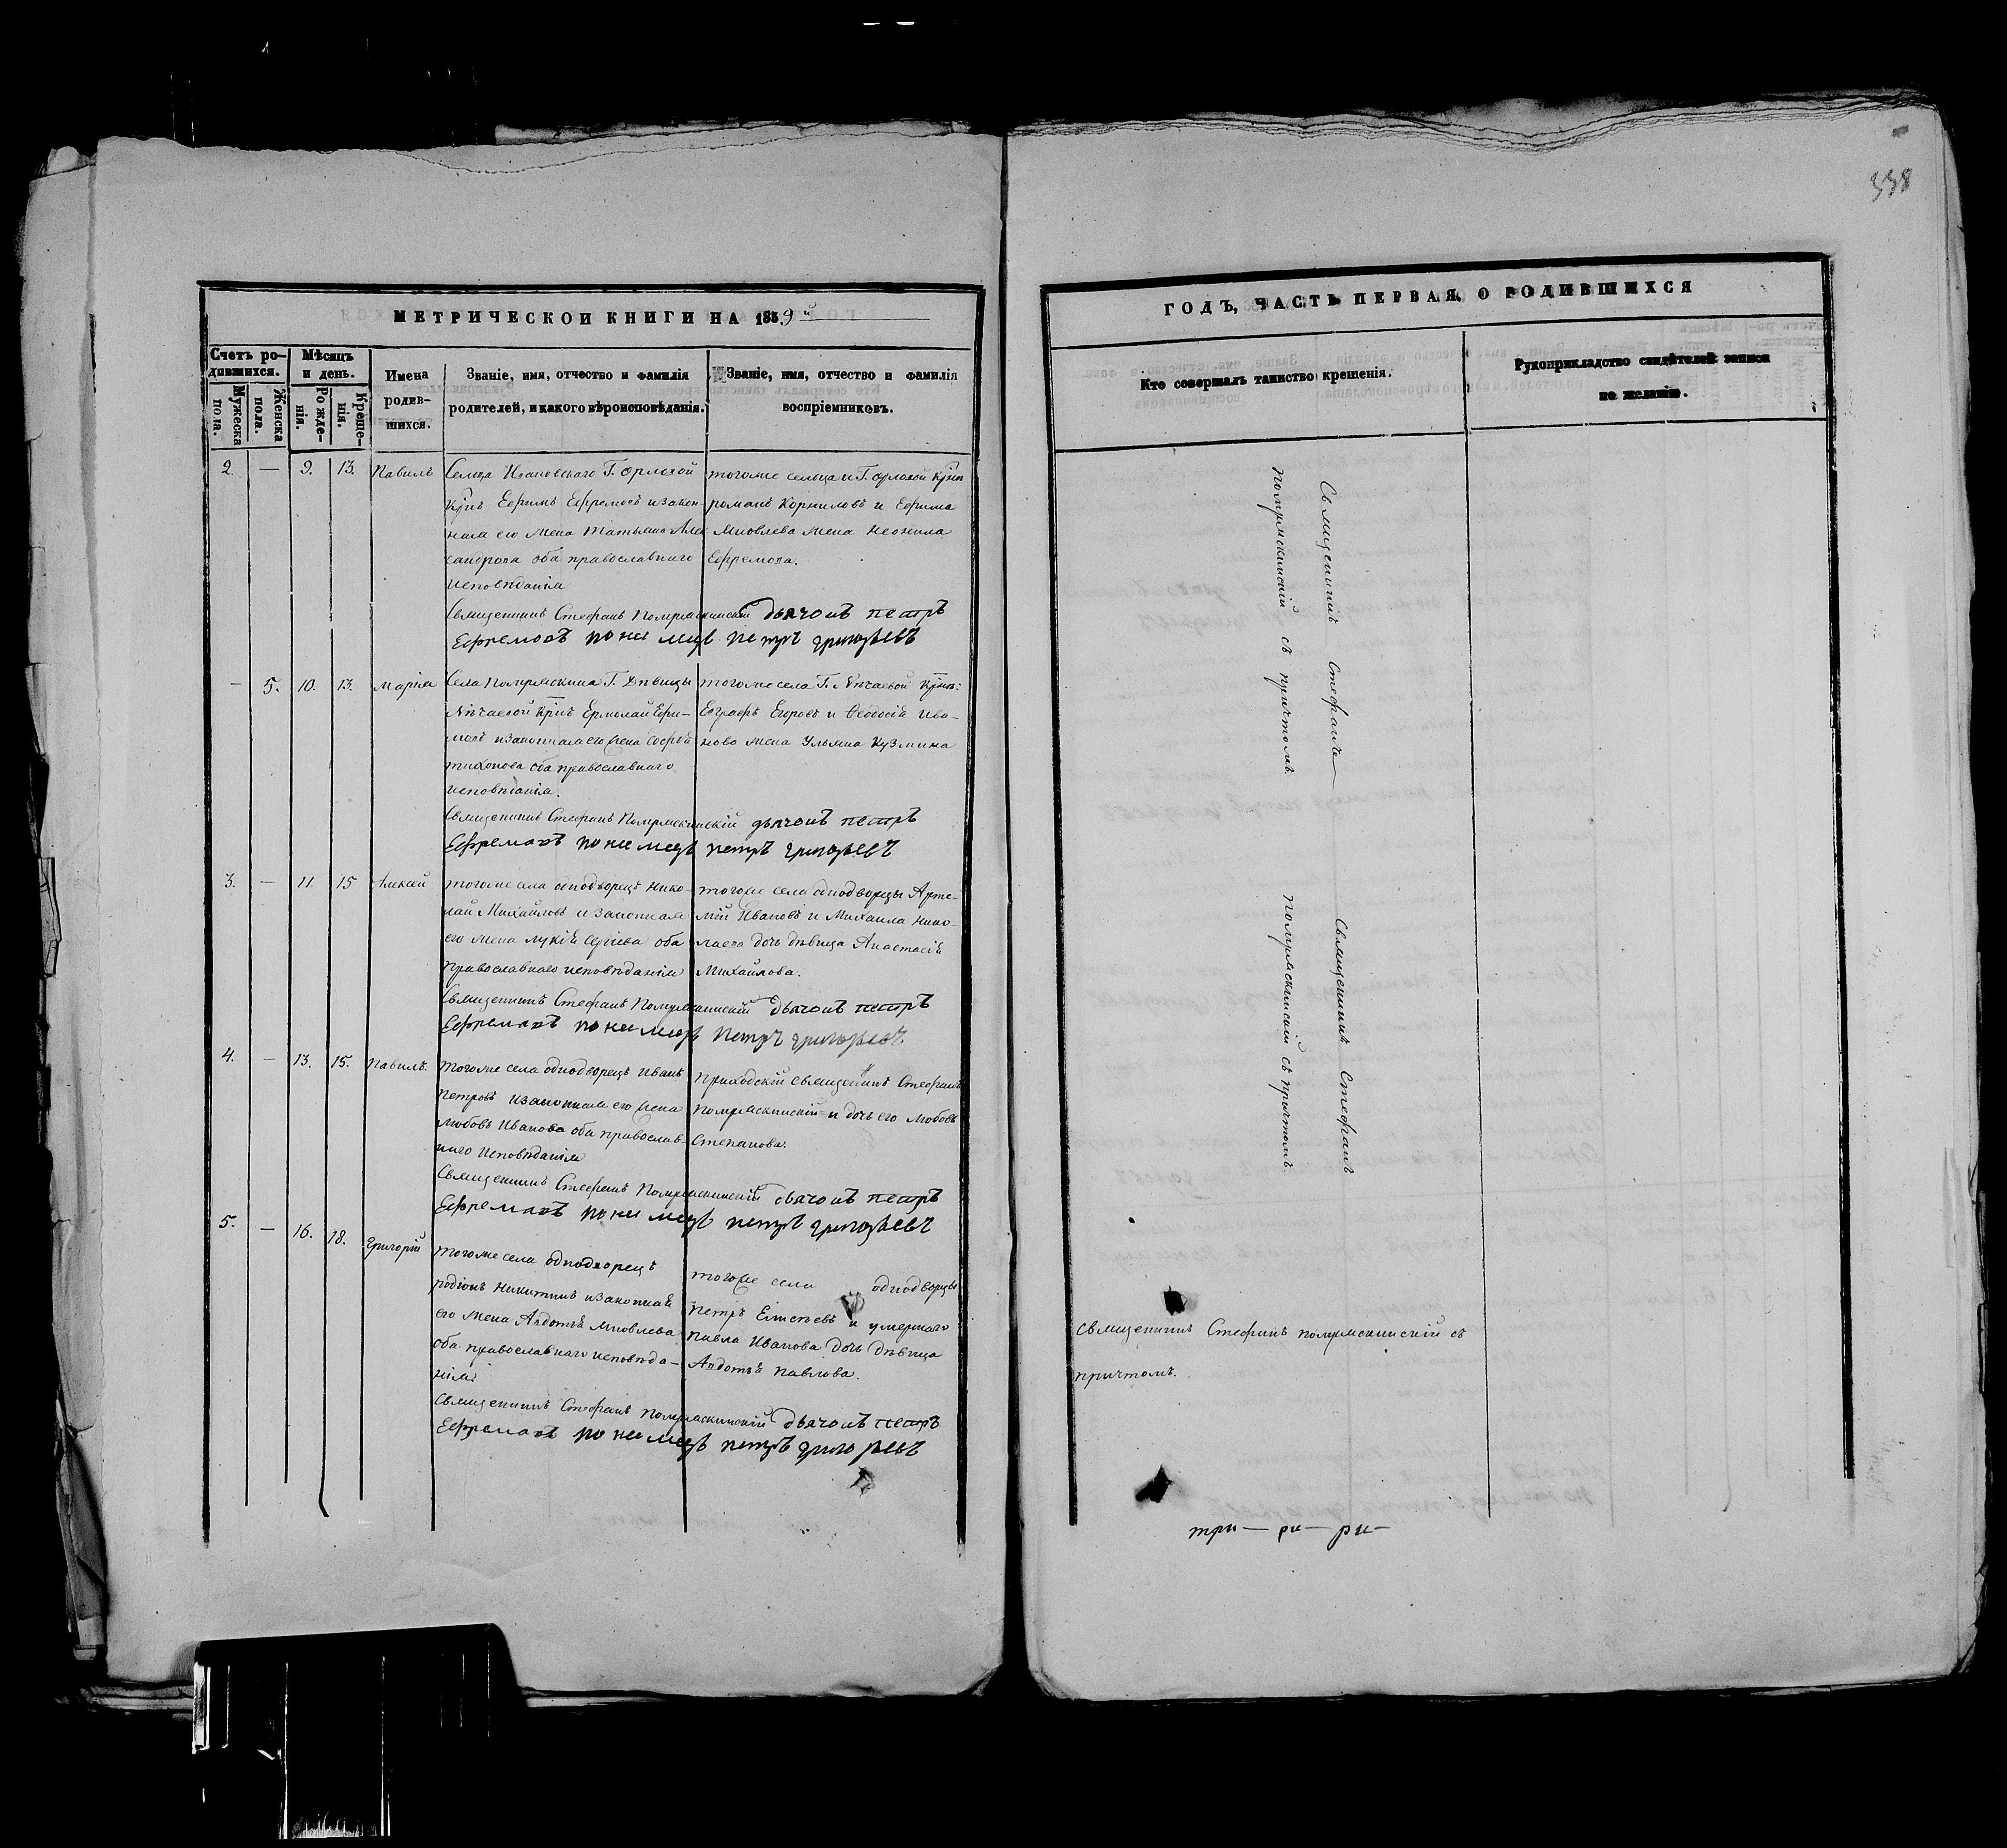 338
МЕТРИЧЕСКОЙ КНИГИ НА 1859й
Счетъ ро-
дившихся.
Мужеска
пола.
Женска
пола.
Мѣсяцъ
и день.
Рожде-
нія.
Креще-
нія.
Имена
родив-
шихся.
Званіе, имя, отчество и фамилія
родителей, и какого вѣроисповѣданія.
Званіе, имя, отчество и фамилія
воспріемниковъ.
2 — 9. 13. Павилъ
Сельца Ивановскаго Г. Орловой
Крнъ Ефримъ Ефремовъ и закон-
ная его жена Татьяна Алек
сандрова оба православнаго
исповѣданія
тогоже сельца и Г. Орловой Крнъ
романъ Корниловъ и Ефима
Яковлева жена Неонила
Ефремова.
Священникъ Стефанъ дьячокъ петръ
Ефремовъ пономарь петръ григорьевъ
— 5. 10. 13. Марія
Села Г. Дѣвицы
Нѣчаевой Крнъ Ермолай Ефи-
мовъ и законная его жена Софья
тихонова оба православнаго
исповѣданія.
тогоже села Г. Нѣчаевой Крнъ:
Евграфъ Егоровъ и Ѳеодосія Ива-
нова жена Ульяна Кузмина
Священникъ Стефанъ дьячокъ петръ
Ефремовъ пономарь петръ григорьевъ
3. — 11. 15 Алексей
тогоже села однодворецъ Нико-
лай Михайловъ и законная
его жена лукія Сергіева оба
православнаго исповѣданія
тогоже села однодворцы Арте-
мій Ивановъ и Михаила Нико-
лаева дочь дѣвица Анастасія
Михайлова.
Священникъ Стефанъ дьячокъ петръ
Ефремовъ пономарь петръ григорьевъ
4. — 13. 15. Павилъ.
тогоже села однодворецъ Иванъ
петровъ и законная его жена
любовь Иванова оба православ-
наго исповѣданія
приходскій священникъ Стефанъ
и дочь его любовь
Степанова.
Священникъ Стефанъ дьячокъ петръ
Ефремовъ пономарь петръ григорьевъ
5. — 16. 18. Григорій
тогоже села однодворецъ
родіонъ Никитинъ и законная
его жена Авдотья Яковлева
оба православнаго исповѣда-
нія
тогоже села однодворцы
петръ Елисѣевъ и умершаго
павла Иванова дочь дѣвица
Авдотья павлова.
Священникъ Стефанъ дьячокъ петръ
Ефремовъ пономарь петръ григорьевъ
ГОДЪ, ЧАСТЬ ПЕРВАЯ, О РОДИВШИХСЯ
Кто совершалъ таинство крещенія.
Рукоприкладство свидѣтелей записи
по желанію.
Священникъ Стефанъ
съ причтомъ.
Священникъ Стефанъ
съ причтомъ.
Священникъ Стефанъ съ
причтомъ.
три— ри— ри—